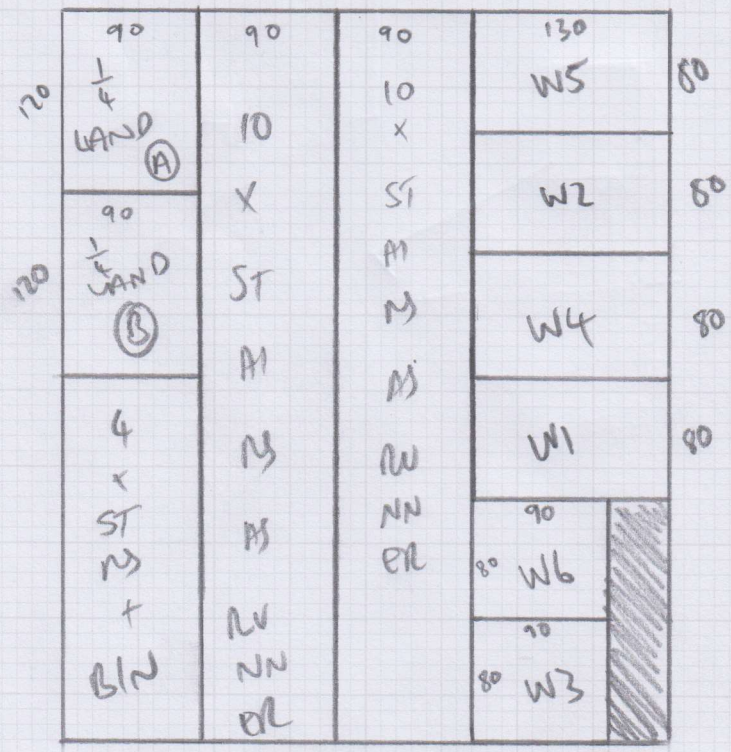 90
1/4
LAND
A
120
90
1/4
LAND
B
120
4
x
ST
NS
+
BIN
90
10
X
ST
AI
NS
AS
RU
NN
ER
90
10
x
ST
AI
NS
AS
RU
NN
ER
130
W5
80
W2
80
W4
80
W1
80
90
80 W6
90
80 W3